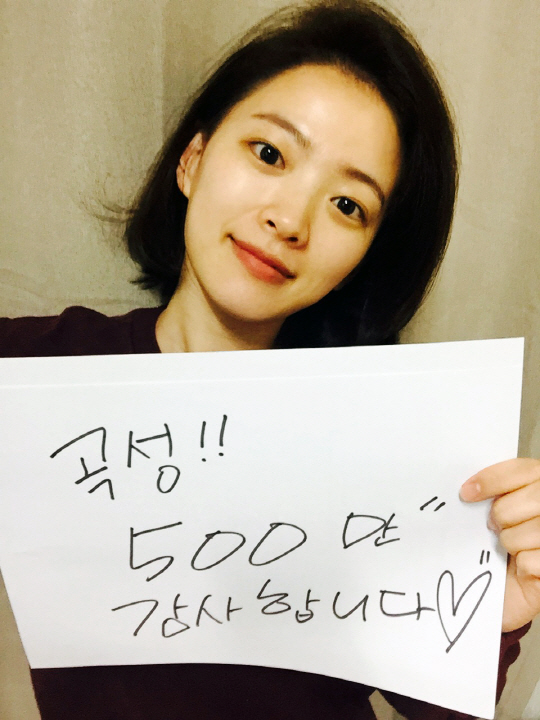 곡성!!
500만"
감사합니다"♡